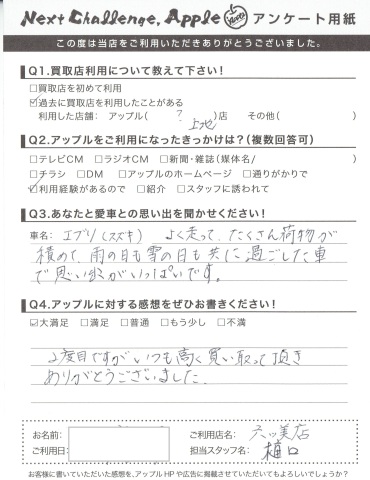 Next Challenge, Apple Apple アンケート用紙
この度は当店をご利用いただきありがとうございました。
Q1.買取店利用について教えて下さい!
□買取店を初めて利用
☑過去に買取店を利用したことがある
利用した店舗: アップル( ? )店 その他( )
上地
Q2.アップルをご利用になったきっかけは?(複数回答可)
□テレビCM □ラジオCM □新聞・雑誌(媒体名/ )
□チラシ □DM □アップルのホームページ □通りがかりで
☑利用経験があるので □紹介 □スタッフに誘われて
Q3.あなたと愛車との思い出を聞かせてください!
車名: エブリ(スズキ) よく走って、たくさん荷物が
積めて、雨の日も雪の日も共に過ごした車
で思い出がいっぱいです。
Q4.アップルに対する感想をぜひお書きください!
☑大満足 □満足 □普通 □もう少し □不満
2度目ですがいつも高く買い取って頂き
ありがとうございました
お名前:
ご利用日:
ご利用店名: 六ッ美店
担当スタッフ名: 樋口
お客様に書いていただいた感想を、アップルHPや広告に掲載させていただいてもよろしいでしょうか?